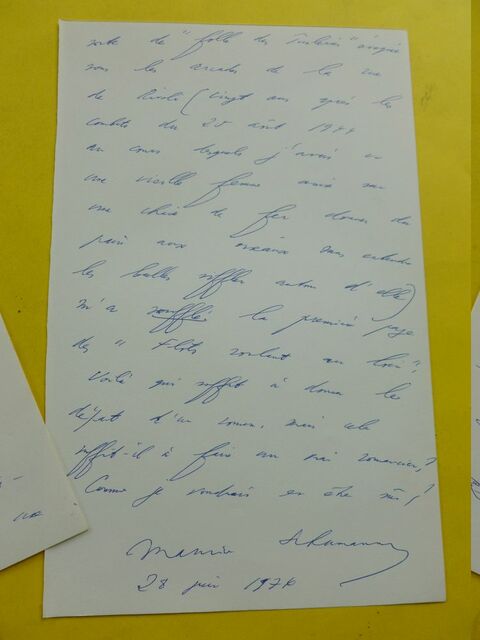 sorte de "folle des Tuileries" assise
sous les arcades de la rue
de Rivoli (vingt ans après les
combats du 25 août 1944
au cours desquels j'avais vu
une vieille femme assise sur
une chaise de fer donner du
pain aux oiseaux sans entendre
les balles siffler autour d'elle)
m'a soufflé la première page
des "Flots roulant au loin".
Voilà qui suffit à donner le
départ d'un roman, mais cela
suffit-il à faire un vrai romancier?
Comme je voudrais en être sûr!
Maurice Schumann
28 juin 1974
uoe